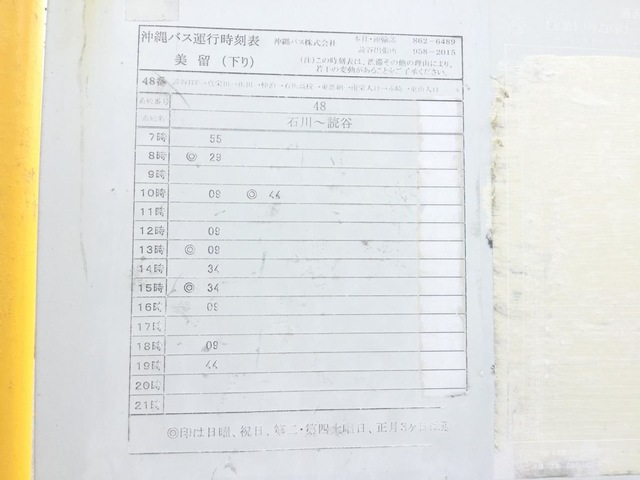 沖縄バス運行時刻表 沖縄バス株式会社 本社・運輸部 862-6489
美 留 (下り) 読谷出張所 958-2015
(注)この時刻表は、渋滞その他の理由により、
若干の変動があることをご了承ください。
48番
系統番号 48
系統名 石川～読谷
7時 55
8時 ◎ 29
9時
10時 09 ◎ 44
11時
12時 09
13時 ◎ 09
14時 34
15時 ◎ 34
16時 09
17時
18時 09
19時 44
20時
21時
◎印は日曜、祝日、第二・第四土曜日、正月3ヶ日